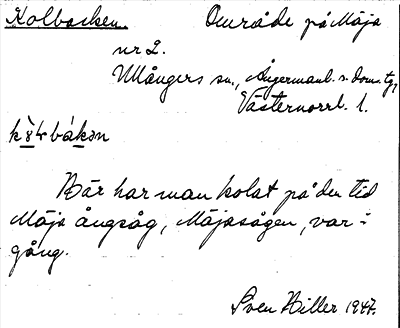 Kolbacken. Område på Måja
nr 2.
Ullångers sn., Ångermanl. s. doms.
Västernorrl. l.
Här har man kolat på den tid
Måja ångsåg, Måjasågen, var i
gång.
Sven Hiller 1947.